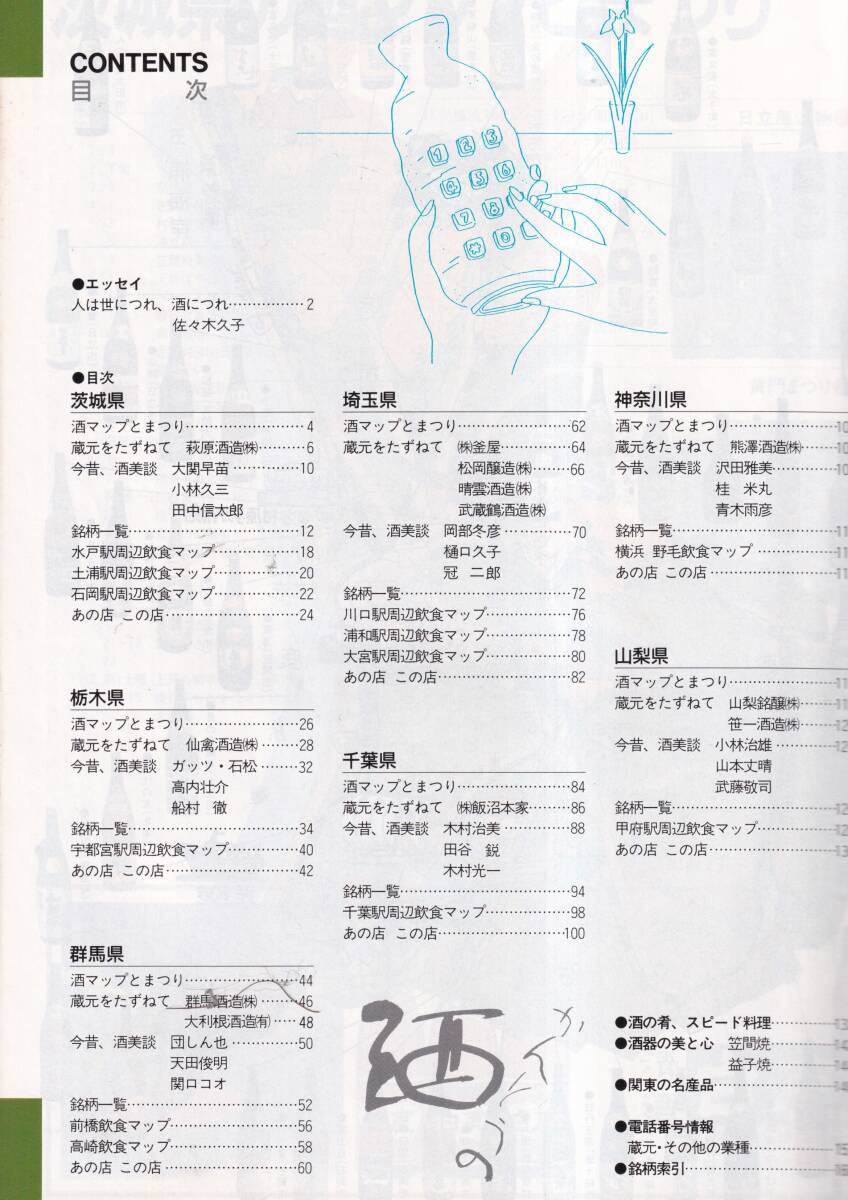 CONTENTS
目 次
1 2 3
4 5 6
7 8
* 0
●エッセイ
人は世につれ、酒につれ……………2
佐々木久子
●目次
茨城県
酒マップとまつり……………4
蔵元をたずねて 萩原酒造㈱………6
今昔、酒美談 大関早苗…………10
小林久三
田中信太郎
銘柄一覧……………………12
水戸駅周辺飲食マップ…………18
土浦駅周辺飲食マップ…………20
石岡駅周辺飲食マップ…………22
あの店 この店………………24
栃木県
酒マップとまつり……………26
蔵元をたずねて 仙禽酒造㈱………28
今昔、酒美談 ガッツ・石松………32
高内壮介
船村 徹
銘柄一覧……………………34
宇都宮駅周辺飲食マップ…………40
あの店 この店………………42
群馬県
酒マップとまつり……………44
蔵元をたずねて 群馬酒造㈱………46
大利根酒造㈲……48
今昔、酒美談 団しん也…………50
天田俊明
関口コオ
銘柄一覧……………………52
前橋飲食マップ………………56
高崎飲食マップ………………58
あの店 この店………………60
埼玉県
酒マップとまつり……………62
蔵元をたずねて ㈱釜屋…………64
松岡醸造㈱………66
晴雲酒造㈱
武蔵鶴酒造㈱
今昔、酒美談 岡部冬彦…………70
樋口久子
冠 二郎
銘柄一覧……………………72
川口駅周辺飲食マップ…………76
浦和駅周辺飲食マップ…………78
大宮駅周辺飲食マップ…………80
あの店 この店………………82
千葉県
酒マップとまつり……………84
蔵元をたずねて ㈱飯沼本家………86
今昔、酒美談 木村治美…………88
田谷 鋭
木村光一
銘柄一覧……………………94
千葉駅周辺飲食マップ…………98
あの店 この店………………100
かんとうの
酒
神奈川県
酒マップとまつり……………10
蔵元をたずねて 熊澤酒造㈱………10
今昔、酒美談 沢田雅美…………10
桂 米丸
青木雨彦
銘柄一覧……………………11
横浜 野毛飲食マップ…………11
あの店 この店………………11
山梨県
酒マップとまつり……………11
蔵元をたずねて 山梨銘醸㈱………11
笹一酒造㈱………12
今昔、酒美談 小林治雄…………12
山本丈晴
武藤敬司
銘柄一覧……………………12
甲府駅周辺飲食マップ…………12
あの店 この店………………13
●酒の肴、スピード料理…………13
●酒器の美と心 笠間焼…………14
益子焼…………14
●関東の名産品………………14
●電話番号情報
蔵元・その他の業種……………15
●銘柄索引……………………16